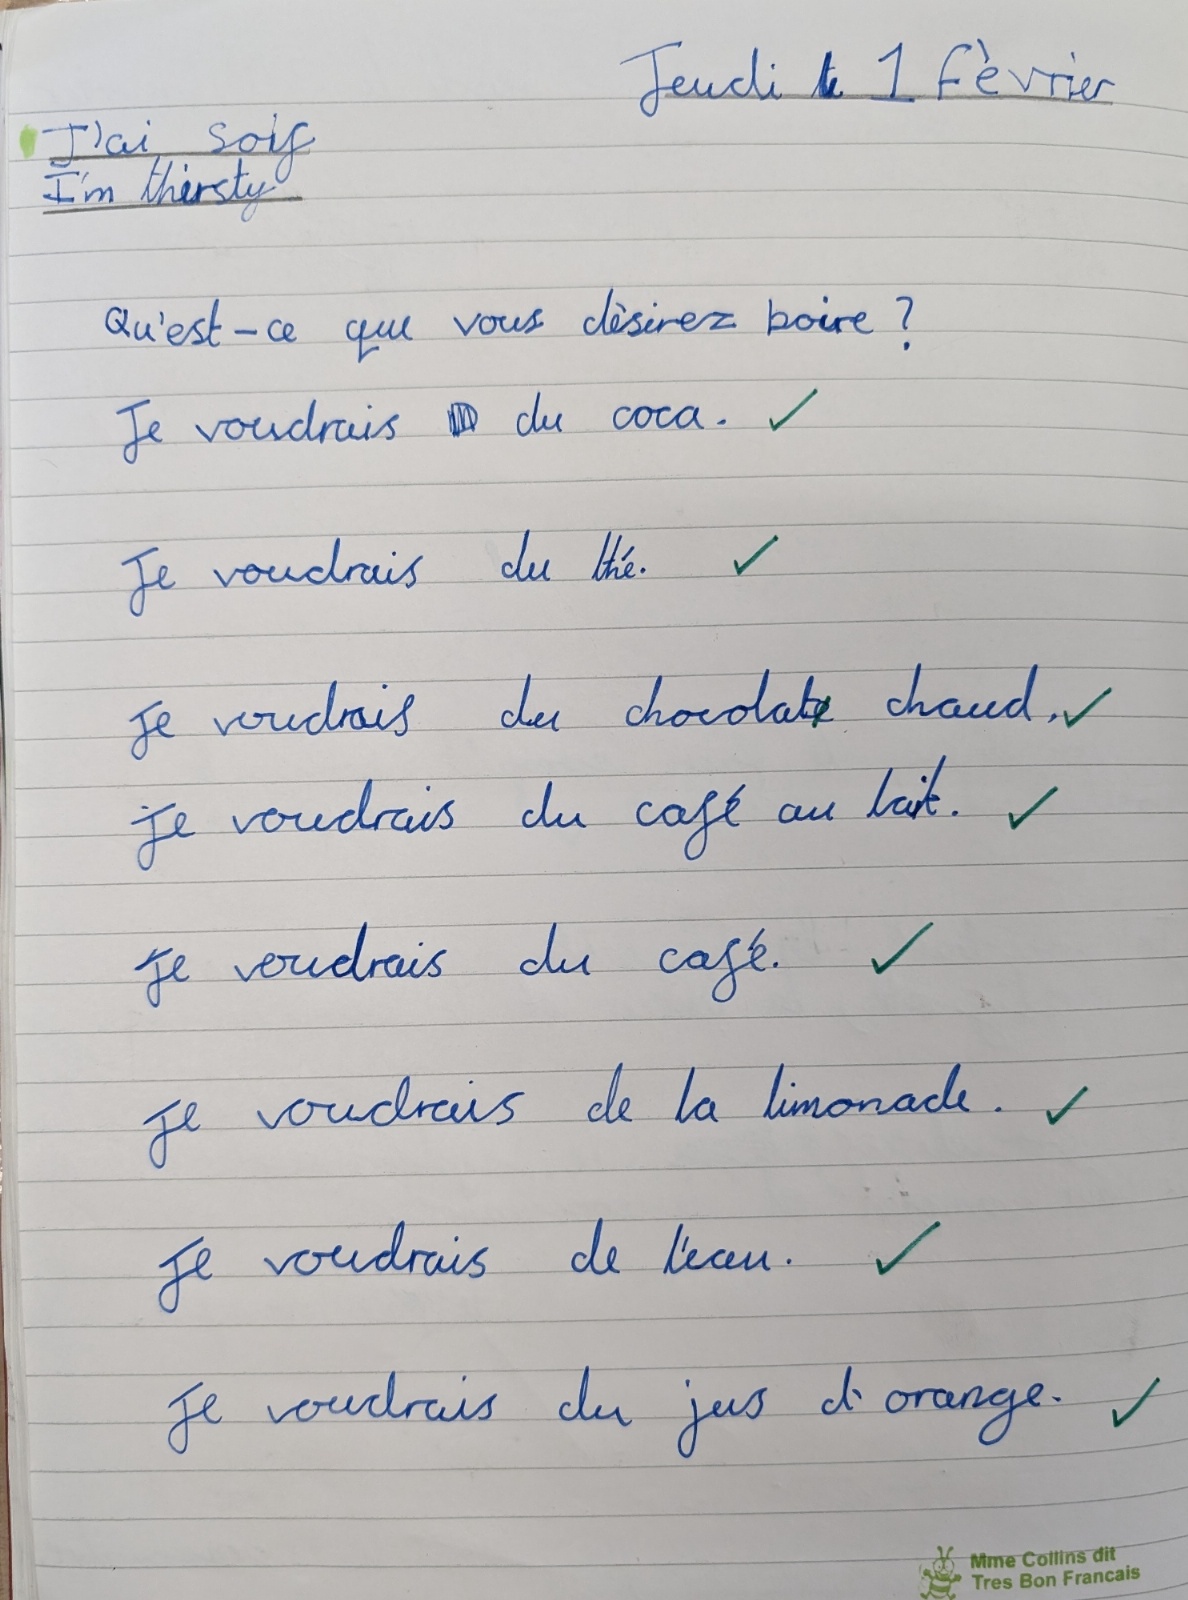 Jeudi le 1 Fèvrier
J'ai soif
I'm thirsty
Qu'est-ce que vous dèsirez boire ?
Je voudrais du coca.
Je voudrais du thé.
Je voudrais du chocolat chaud.
Je voudrais du café au lait.
Je voudrais du café.
Je voudrais de la limonade.
Je voudrais de l'eau.
Je voudrais du jus d'orange.
Mme Collins dit
Tres Bon Francais